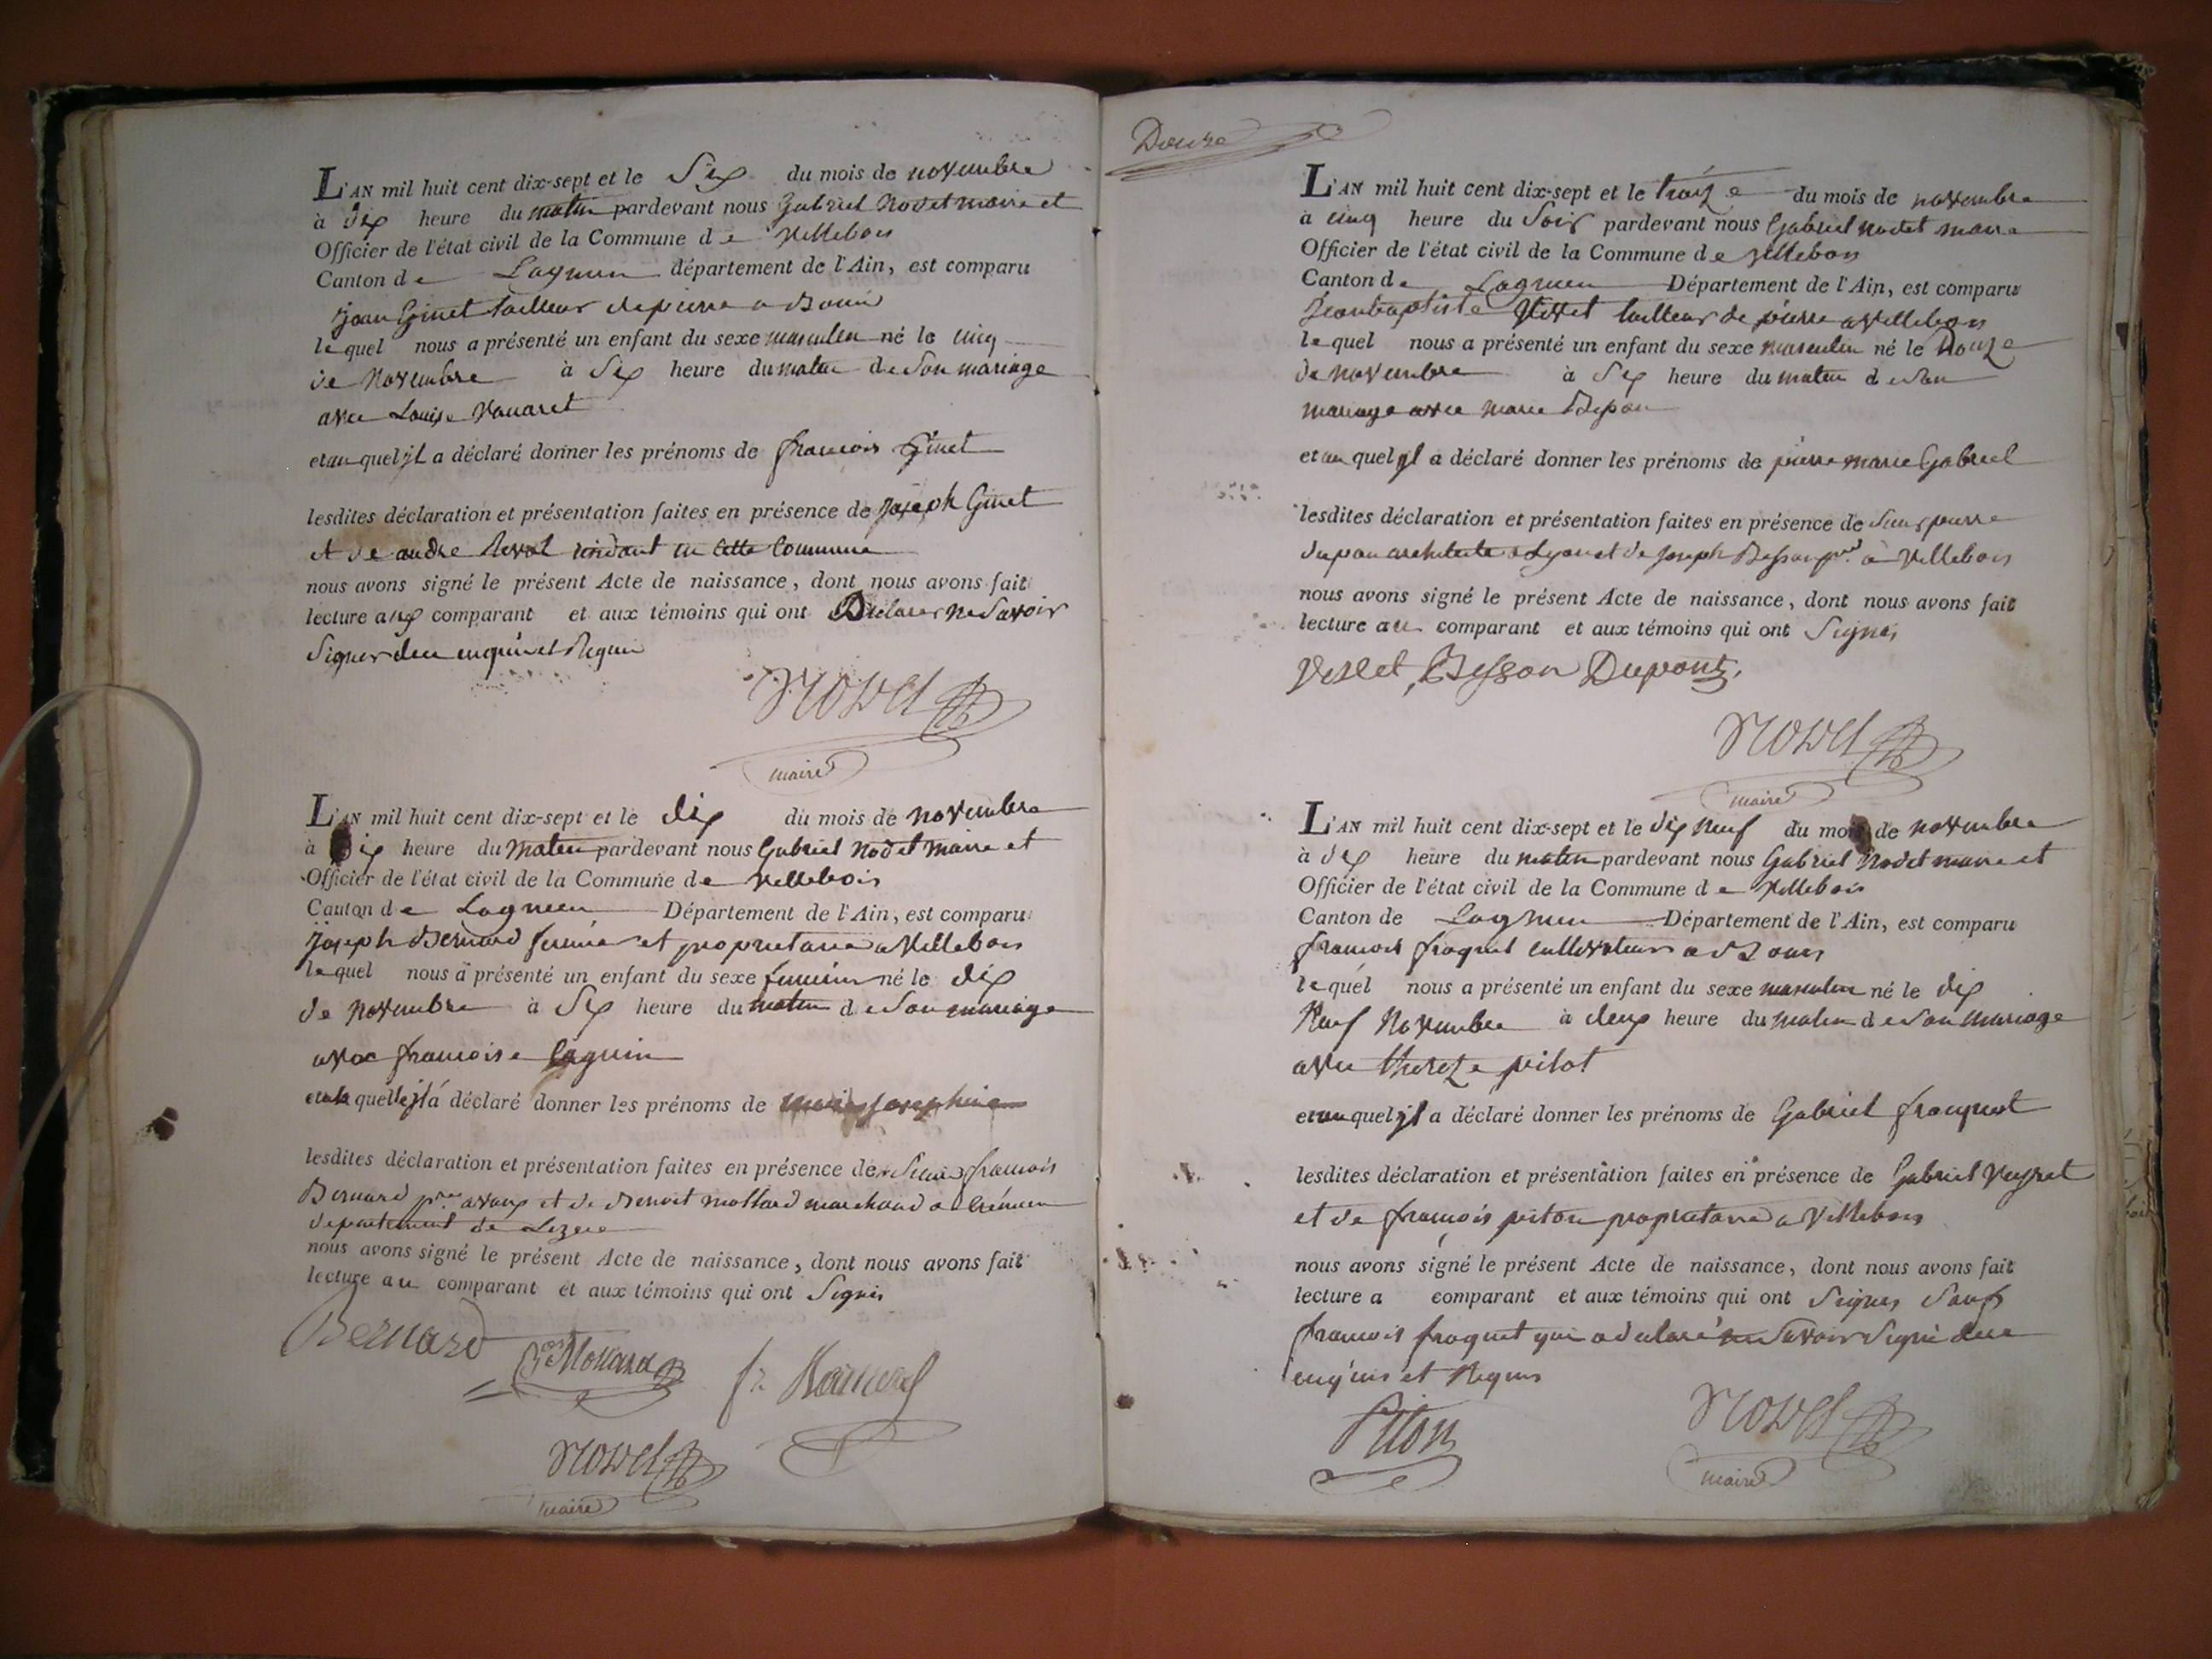 L'AN mil huit cent dix-sept et le Six du mois de novembre
à dix heure du matin pardevant nous Gabriel Nodet maire et
Officier de l'état civil de la Commune de Villebois
Canton de Lagnieu département de l'Ain, est comparu
jean Ginet tailleur de pierre a Bouis
lequel nous a présenté un enfant du sexe masculin né le cinq
de Novembre à Six heure du matin de Son mariage
avec Louise
et au quel il a déclaré donner les prénoms de francois Ginet
lesdites déclaration et présentation faites en présence de joseph Ginet
et de andre en cette Commune
nous avons signé le présent Acte de naissance, dont nous avons fait
lecture aux comparant et aux témoins qui ont Declarer ne Savoir
Signer deu enquis et Requis
Nodet
maire
L'AN mil huit cent dix-sept et le dix du mois de novembre
à Dix heure du Matin pardevant nous Gabriel Nodet Maire et
Officier de l'état civil de la Commune de Villebois
Canton de Lagnieu Département de l'Ain, est comparu
joseph Bernard et proprietaire a Villebois
lequel nous a présenté un enfant du sexe feminin né le dix
de Novembre à Six heure du matin de Son mariage
avec francoise
et a la quelle il a déclaré donner les prénoms de marie josephine
lesdites déclaration et présentation faites en présence de Sieur francois
Bernard pre. a vaux et de Benoit Mollard marchand a Crémieu
departement de Lizere
nous avons signé le présent Acte de naissance, dont nous avons fait
lecture au comparant et aux témoins qui ont Signés
Bernard
Mollard
fs Bernard
Nodet
maire
Douze
L'AN mil huit cent dix-sept et le traize du mois de novembre
à cinq heure du Soir pardevant nous Gabriel Nodet maire
Officier de l'état civil de la Commune de Villebois
Canton de Lagnieu Département de l'Ain, est comparu
Jeanbaptiste Vettet tailleur de pierre a Villebois
lequel nous a présenté un enfant du sexe masculin né le Douze
de novembre à Six heure du matin de Son
mariage avec marie
et au quel il a déclaré donner les prénoms de pierre marie Gabriel
lesdites déclaration et présentation faites en présence de Sieur pierre
dupon architecte a Lyon et de joseph Besson pre. a Villebois
nous avons signé le présent Acte de naissance, dont nous avons fait
lecture au comparant et aux témoins qui ont Signés
Vettet, Besson Dupont,
Nodet
maire
L'AN mil huit cent dix-sept et le dix Neuf du mois de novembre
à dix heure du matin pardevant nous Gabriel Nodet maire et
Officier de l'état civil de la Commune de Villebois
Canton de Lagnieu Département de l'Ain, est comparu
francois froquet cultivateur a Bouis
lequel nous a présenté un enfant du sexe masculin né le dix
Neuf Novembre à deux heure du matin de Son Mariage
avec thereze pitot
et au quel il a déclaré donner les prénoms de Gabriel froquet
lesdites déclaration et présentation faites en présence de Gabriel Veyret
et de françois piton proprietaire a Villebois
nous avons signé le présent Acte de naissance, dont nous avons fait
lecture a comparant et aux témoins qui ont Signés Sauf
francois froquet qui a declaré ne Savoir Signé deu
enquis et Requis
Piton
Nodet
maire